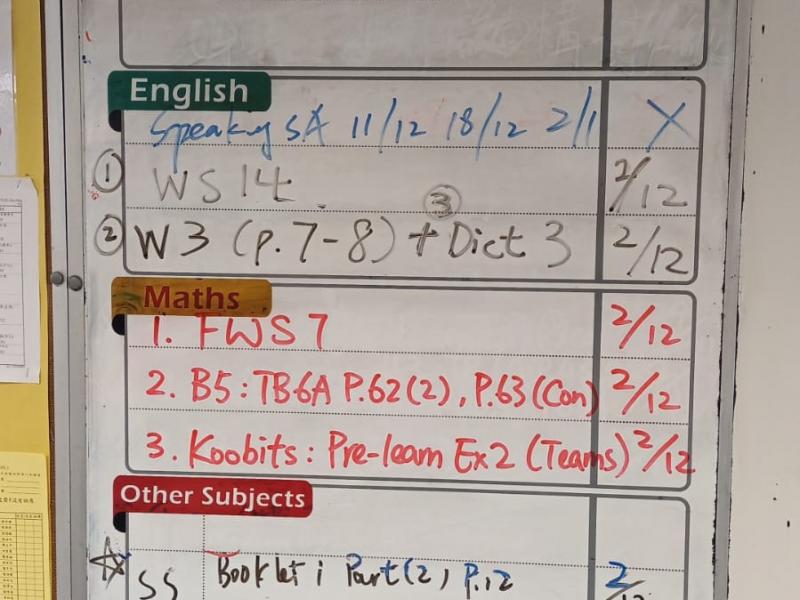 English
Speaking SA 11/12 18/12 2/1 X
① WS 14 2/12
② W3 (p.7-8) + ③ Dict 3 2/12
Maths
1. FWS7 2/12
2. B5: TB6A P.62(2), P.63(Con) 2/12
3. Koobits: Pre-learn Ex2 (Teams) 2/12
Other Subjects
☆ SS Booklet i Part(2), P.12 2/12